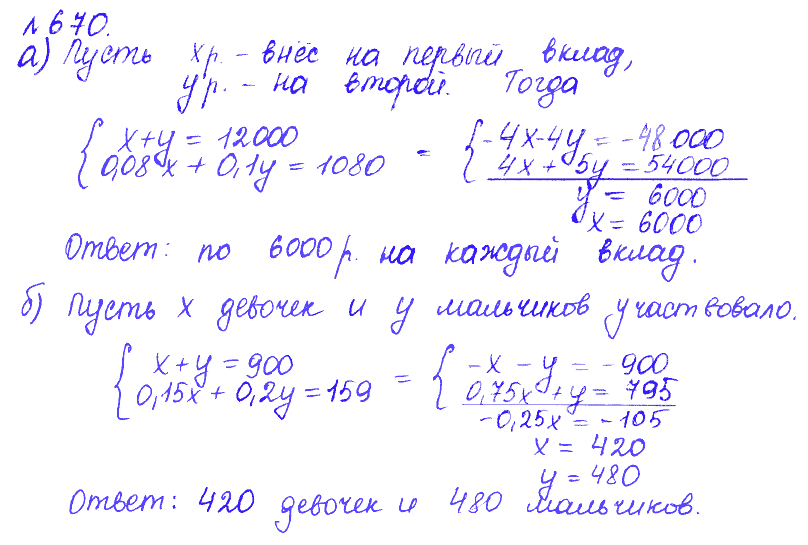 №670.
а) Пусть х р. – внёс на первый вклад,
у р. – на второй. Тогда
{ x+y = 12000 = { -4x-4y = -48000
0,08x + 0,1y = 1080 4x + 5y = 54000
y = 6000
x = 6000
Ответ: по 6000 р. на каждый вклад.
б) Пусть х девочек и у мальчиков участвовало.
{ x+y = 900 = { -x - y = -900
0,15x + 0,2y = 159 0,75x + y = 795
-0,25x = -105
x = 420
y = 480
Ответ: 420 девочек и 480 мальчиков.